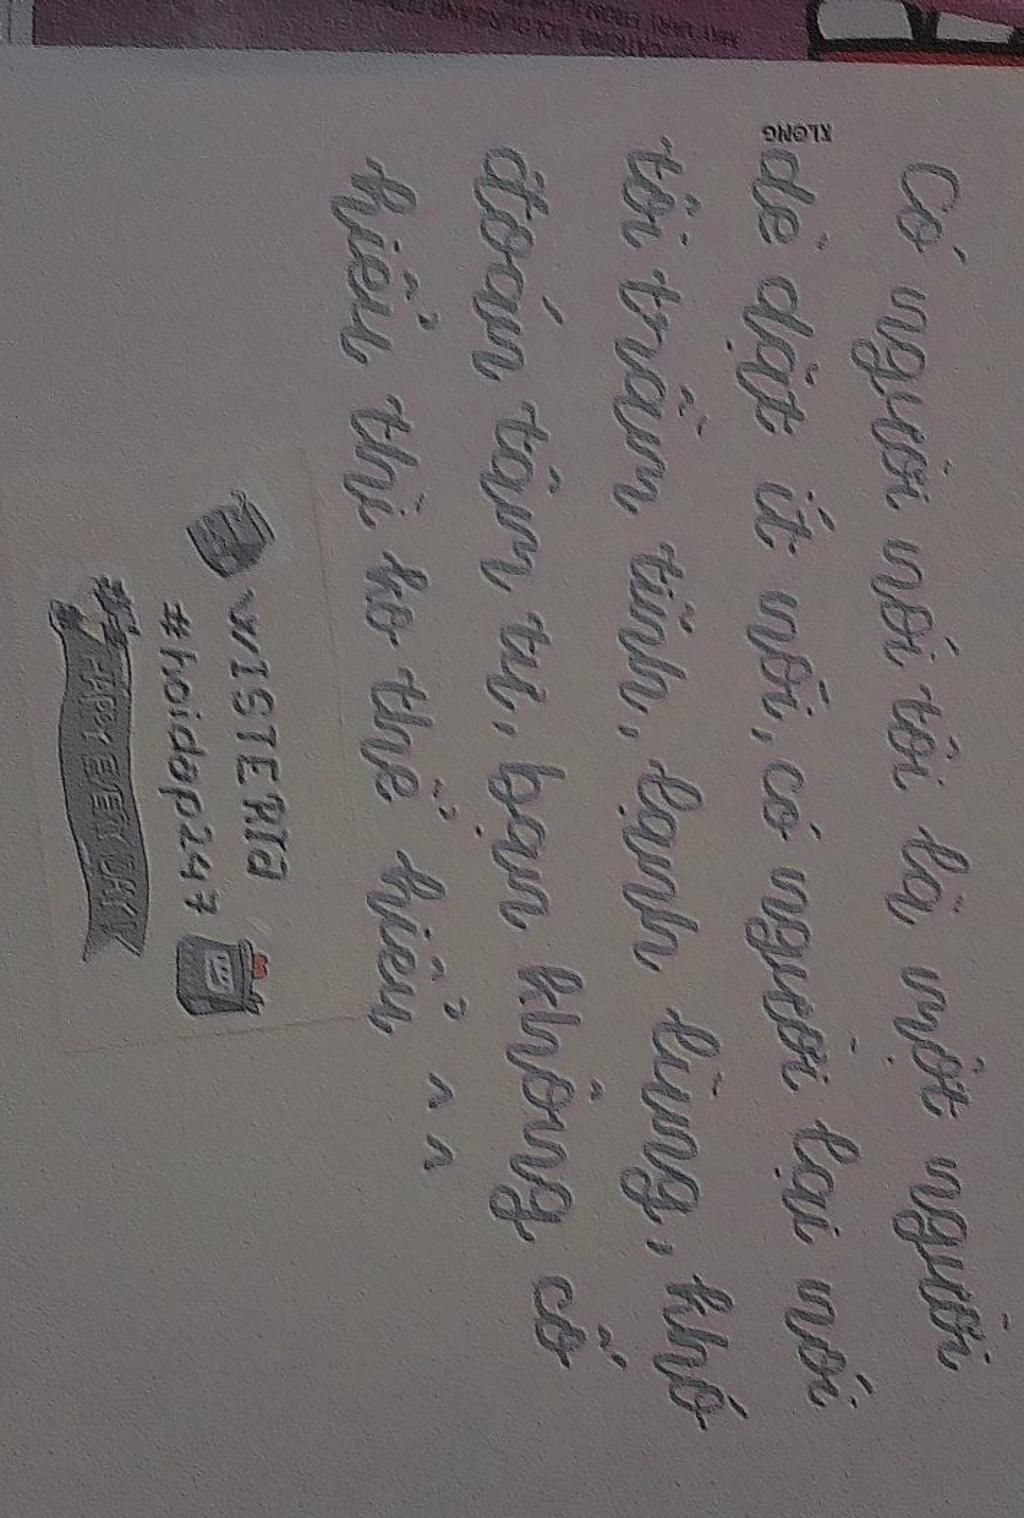 Có người nói tôi là một người
dè dặt ít nói, có người lại nói
tôi trầm tính, lạnh lùng, khó
đoán tâm tư, bạn không cố
hiểu thì ko thể hiểu ^ ^
WISTERIA
#hoidap247
KLONG